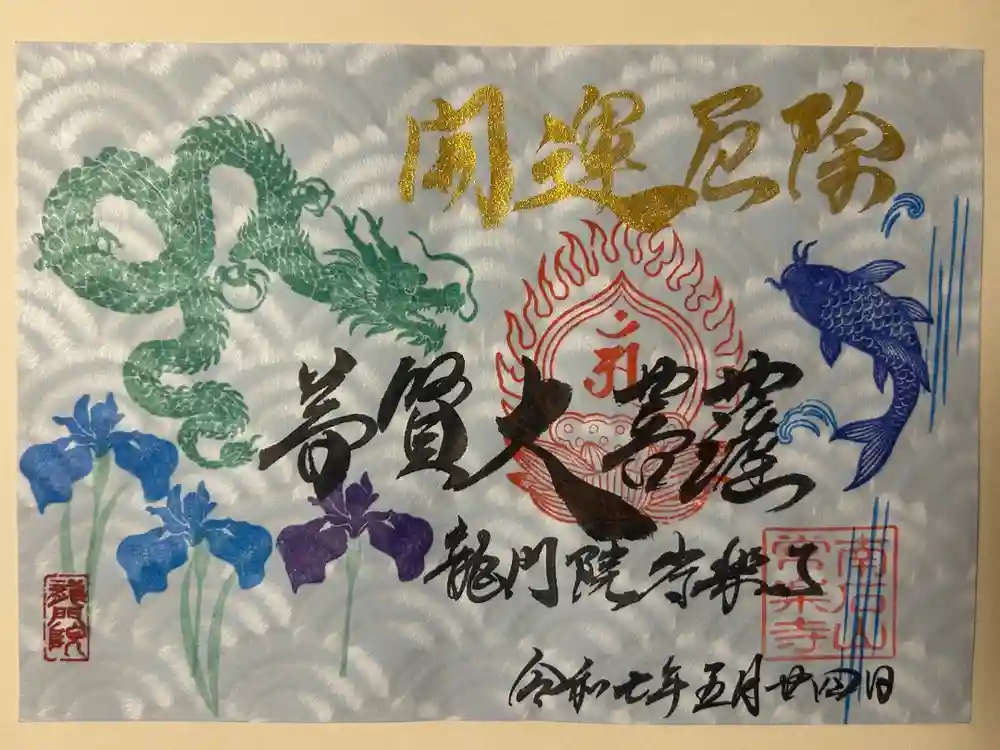 開運厄除
普賢大菩薩
龍門院 常楽寺
令和七年五月廿四日
南石山
常楽寺
龍門院